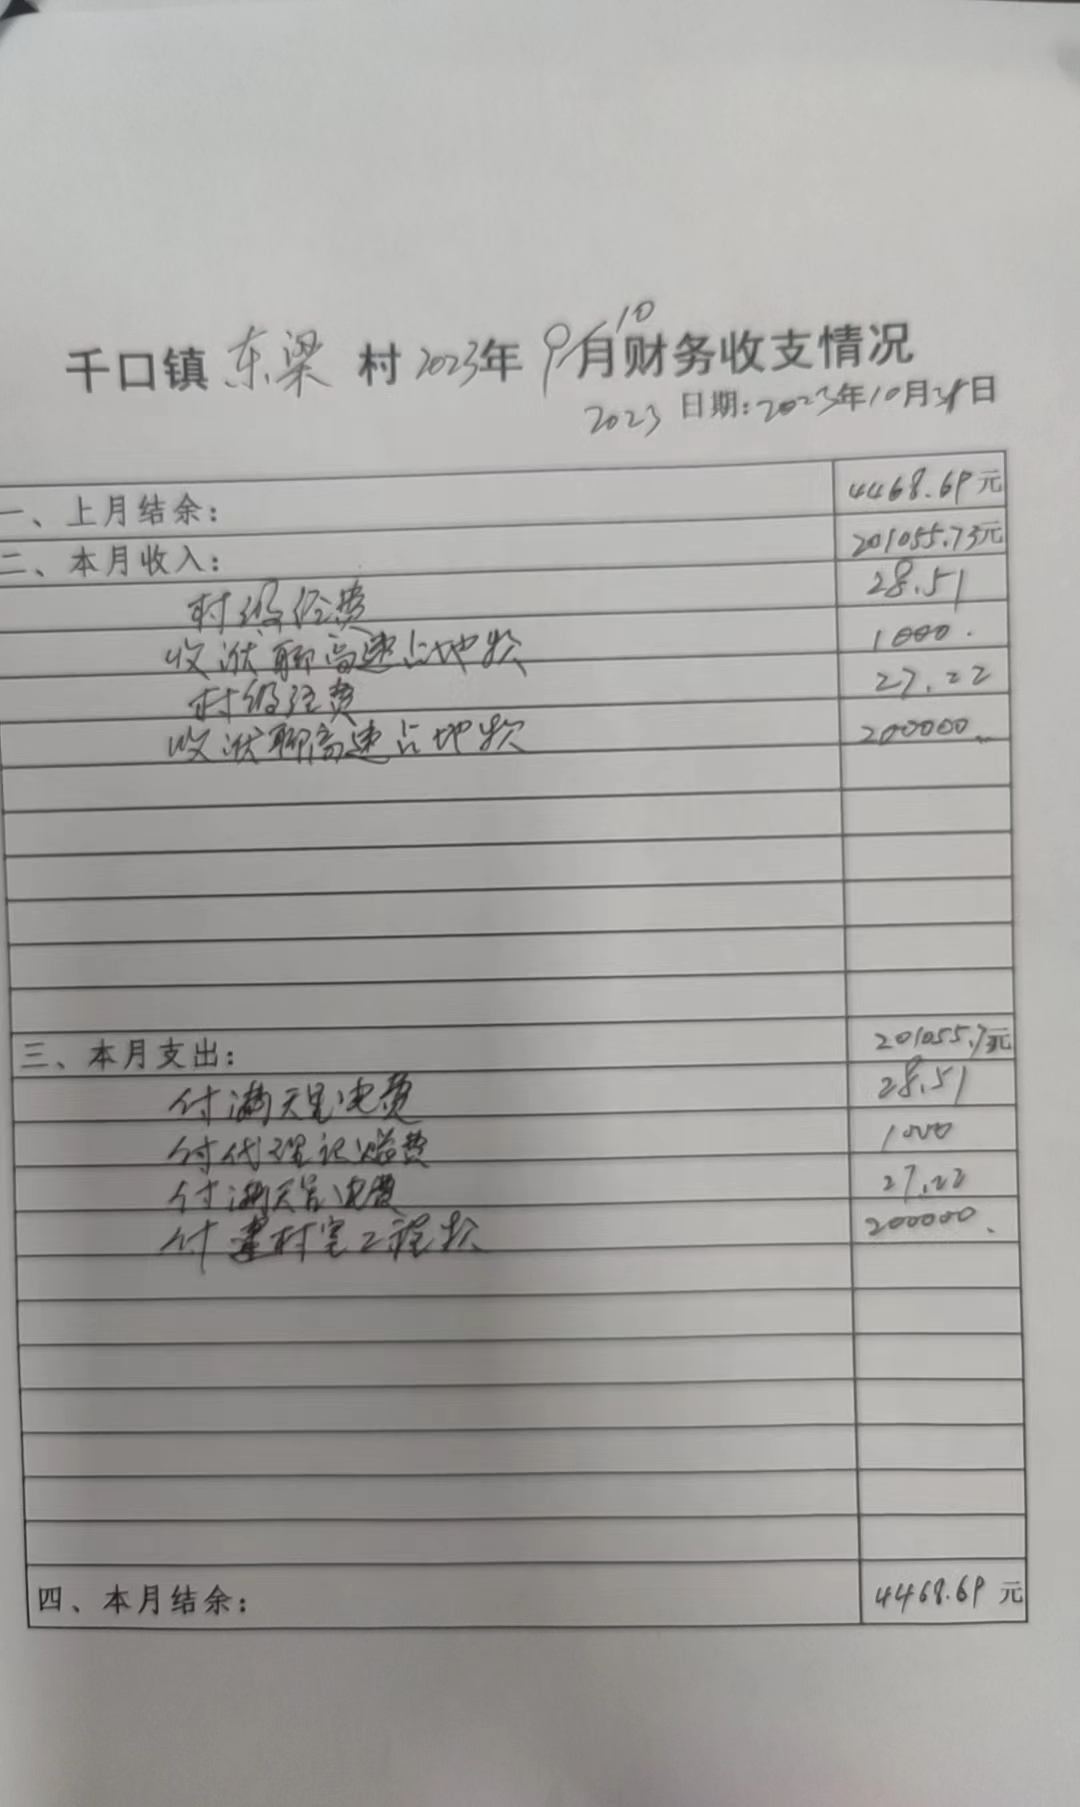 千口镇 东梁 村 2023年 9月 10 财务收支情况
2023 日期:2023年10月31日
一、上月结余: 4468.69元
二、本月收入: 201055.73元
村级经费 28.51
收濮聊高速占地款 1000.
村级经费 27.22
收濮聊高速占地款 200000
三、本月支出: 201055.73元
付满天星电费 28.51
付代理记账费 1000
付满天星电费 27.22
付建村室工程款 200000.
四、本月结余: 4468.69 元